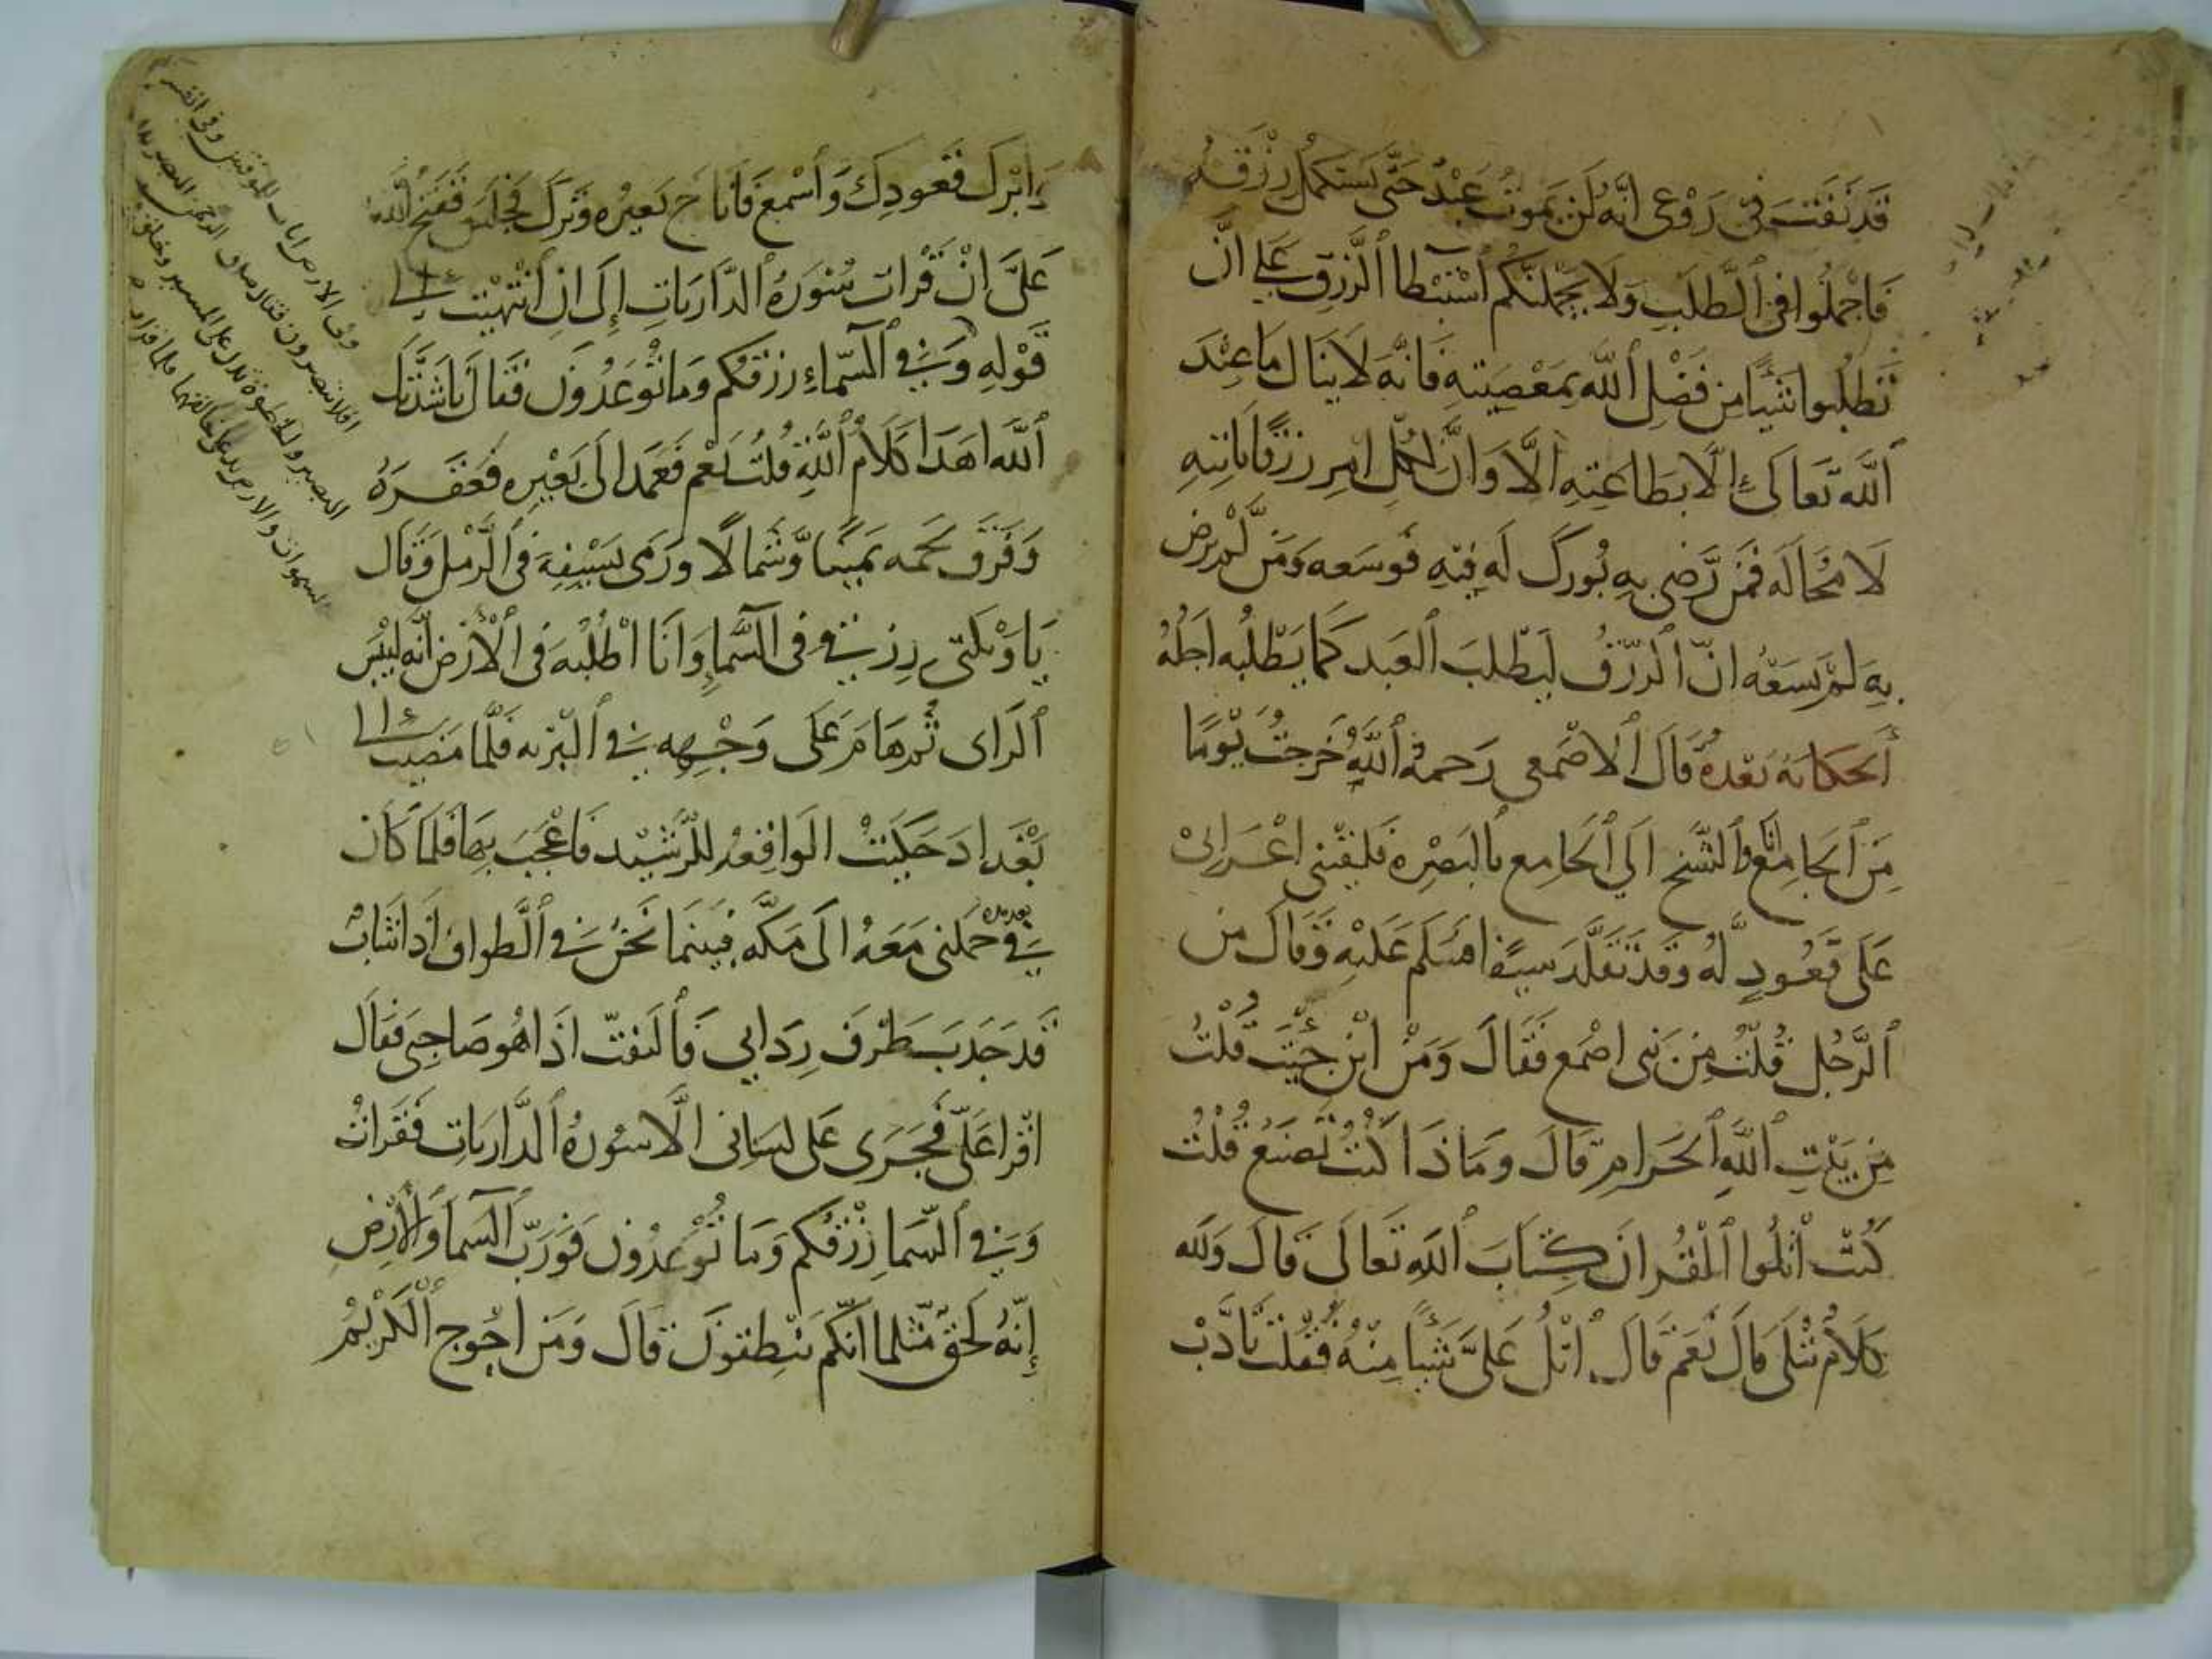 قَد نَفَثَ فى رَوْعى انَّهُ لَن يَموتُ عَبْدُ حَتَّى يَستَكمِلُ رِزْقَهُ
فَاجْمِلُوا فى الطَّلَبِ وَلَا يحمِلَنَّكُم اسْتِبْطَا الرِّزقِ عَلى انَّ
تَطلُبوا شَيًا مِن فَضْلِ اللَّه بِمَعْصِيَتِهِ فَانَّه لَا يَنَال مَا عِنْدَ
اللَّه تَعَالَى إلَّا بِطَاعَتِهِ الَّا وَانَّ لكُلِّ امرِ رِزقًا يَاتِيهِ
لَا مَحَالَه فَمَن رَّضِى بِهِ بُورِكَ لَه فِيهِ فَوَسَعَه وَمَن لَّم يرض
بِهِ لَم يَسَعْهُ انّ الرّزقُ لَيَطْلبَ العَبد كَما يَطْلُبُه اجَلُهُ
الحكايه بعده قَالَ الاصْمَعى رَحمةُ اللَّهِ خَرجتُ يَوْمًا
مِنَ الجَامِع انا وَالشَّيخ الَي الجَامِع بالبَصْرِه فَلَقِيَنى اعْرَابىْ
عَلَى قَعُودٍ لَّهُ وَقَد تَقَلَّدَ سيفًا فسَلم عَلَيْهِ وَقَالَ مِن
الرَّجُل قُلْتُ مِن بَنى اصْمَع فَقَالَ وَمَنْ ايْن جِيْتَ قُلْتُ
مِن بَيْتِ اللَّهِ الحَرامِ قَالَ وَمَاذَا كُنْتُ تَصْنَعُ قُلْتُ
كُنْت أتْلُوا الْقُرانَ كِتَابَ اللَّهِ تَعَالَى قَالَ وَلله
كَلَامٌ يُتْلَى قَالَ نَعَم قَالَ اتْلُ عَلىَّ شَيًا مِنْهُ فَقُلْتُ تَادَّبْ
وابْرِك قَعودِكَ وَاسْمع فَاناخ بَعيرُه وَبَرَكَ فجلس ففتح اللّه
عَلىَّ انْ قَرات سُورَةُ الذَّارِيَاتِ إلَى ان انْتَهَيْت إلى
قَوْلِهِ وَفِي السَّمَاءِ رِزقكُم وَمَا تُوعَدُونَ فَقَالَ نَاشَدْتُك
اللَّه اهَذَا كَلَامُ اللَّهِ قُلْتُ نَعْم فَعَمَد الَى بَعْيِرِه فَعَقَرَهُ
وَفَرَق لحمه يَمِينًا وَّشمالًا وَرَمى بسَيْفِهِ فى الرَّمْل وَقَال
يَا وَيْلَتى رِزقى فى السَّمَاءِ وَانَا اطْلُبْهَ فى الأَرْضِ انَّه لَيْس
الرَاى ثُم هَامَ عَلَى وَجْهِهِ في البَرِيه فَلَمَّا مَضيت إلى
بَغْدادَ حَكَيْتْ الوَاقِعَه للرَّشيد فَاعْجَبَ بِهَا فَلما كَانَ
بعد مده في حَملنى مَعَهُ الَى مَكَّه فَبينَمَا نَحْنُ فى الطَّواف اذ انْسَان
قَد جَذَبَ طَرَف رِدَايي فَالتَفَتّ اذَا هُو صَاحِبى فَقَال
اقْرا عَلَىّ فَجَرَى عَلى لسَانى الّا سُورةُ الذَّارِيَاتِ فَقَراتُ
وَفي السَّمَا رِزْقُكُم وَمَا تُوْعدُون فَوَرَبّ السَّمَا وَالأَرْضِ
إنّهُ لَحَق مِّثلَما انّكُم تَنْطِقونَ قَالَ وَمَن احْوج الْكَرِيمُ
وفى الارض ايات للموقنين وفى انفسكم
افلا تبصرون فقال